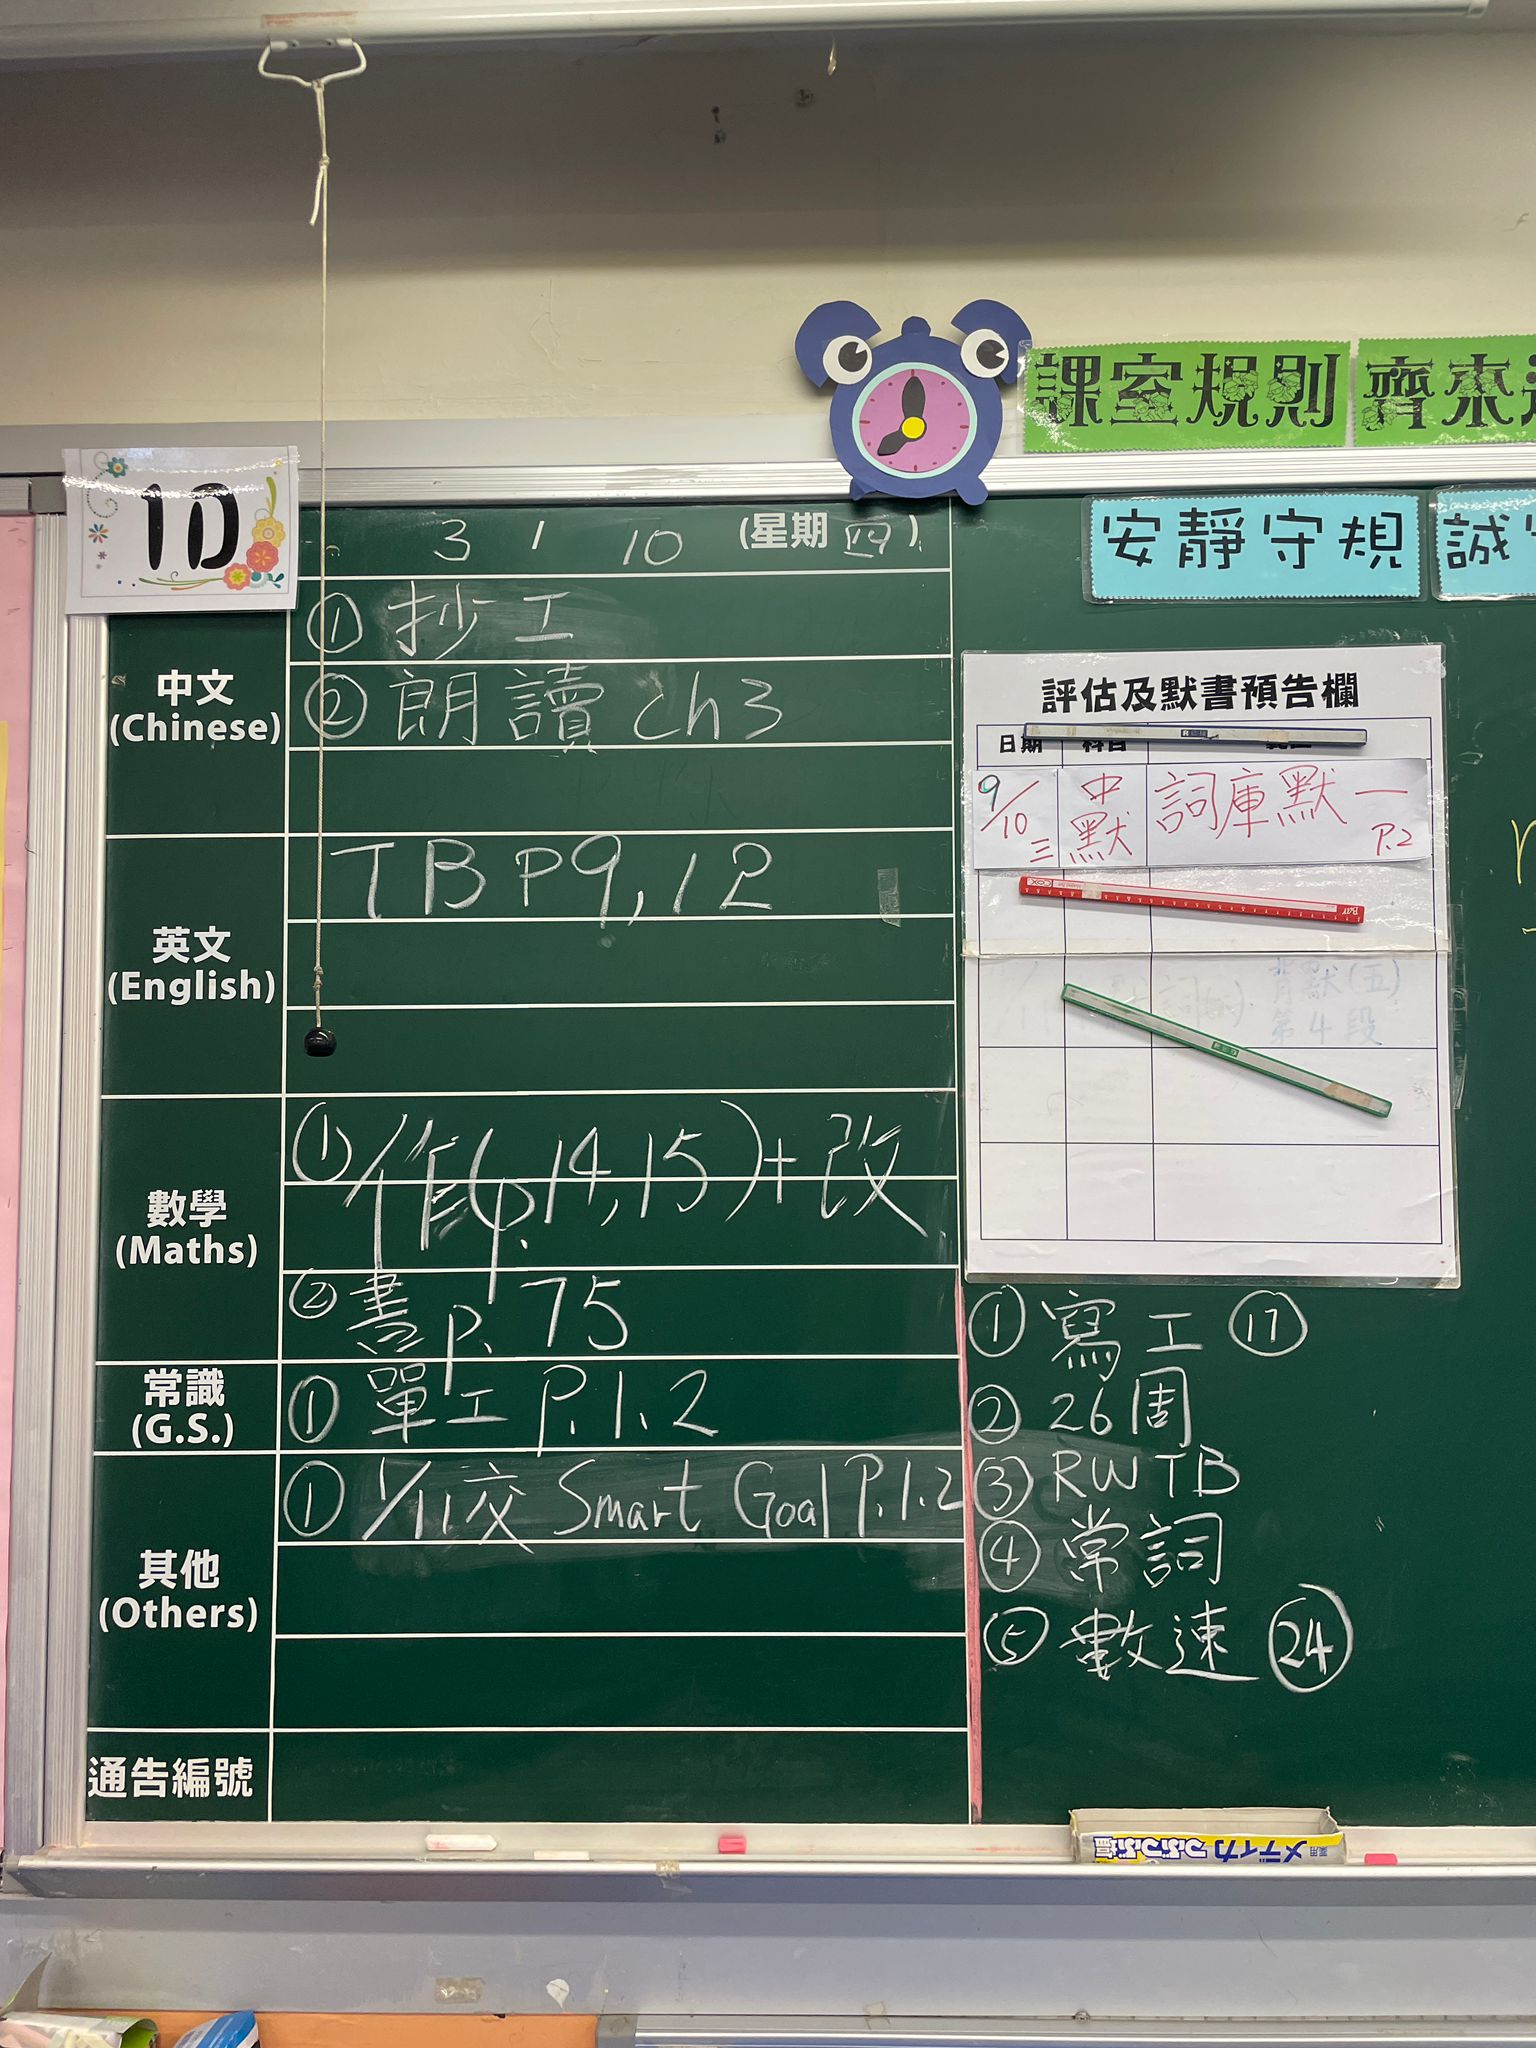 課室規則 齊來
1D
3 / 10 (星期四)
安靜守規 誠
中文
(Chinese)
① 抄工
② 朗讀 ch3
英文
(English)
TB P9,12
數學
(Maths)
① 作(p.14,15)+改
② 書p.75
常識
(G.S.)
① 單工 P.1.2
其他
(Others)
① 1/11交 Smart Goal P.1.2
通告編號
評估及默書預告欄
日期 科目
9/10 三 中默 詞庫默一 P.2
背默(五)
第4段
① 寫工 ⑰
② 26周
③ RWTB
④ 常詞
⑤ 數速 ㉔
メディカ つぶつぶ